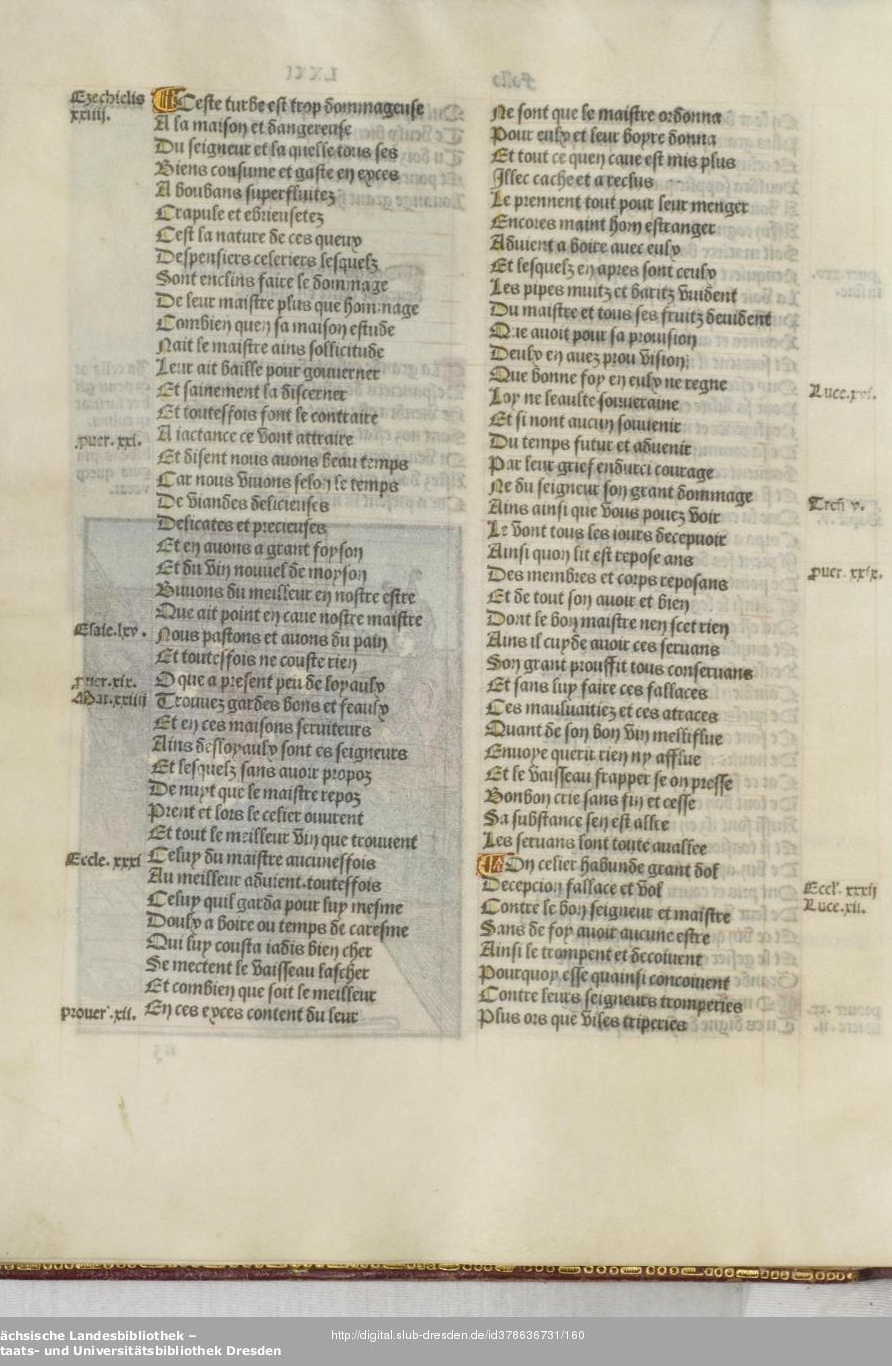 Ezechielis
xxiiii.
Ceste turbe est trop dommageuse
A la maison et dangereuse
Du seigneur et la quelle tous ses
Biens consume et gaste en exces
A boubans superfluitez
Crapule et ebrieusetez
Cest la nature de ces queux
Despensiers celeriers lesquelz
Sont enclins faire le dommage
De leur maistre plus que hommage
Combien quen sa maison estude
Nait le maistre ains sollicitude
Leur ait baille pour gouverner
Et sainement la discerner
Et toutesfois font le contraire
puer. xxi.
A iactance ce vont attraire
Et disent nous avons beau temps
Car nous vivons selon le temps
De viandes delicieuses
Delicates et precieuses
Et en avons a grant foyson
Et du vin nouvel de moyson
Buvons du meilleur en nostre estre
Que ait point en cave nostre maistre
Esaie. lxv.
Nous pastons et avons du pain
Et toutesfois ne couste rien
puer. xix.
O que a present peu de loyaulx
Mat. xxiiii
Trouvez gardes bons et feaulx
Et en ces maisons serviteurs
Ains desloyaulx sont es seigneurs
Et lesquelz sans avoir propoz
De nuyt que le maistre repoz
Prent et lors le celier ouvrent
Et tout le meilleur vin que trouvent
Eccle. xxxi
Celuy du maistre aucunesfois
Au meilleur advient.toutesfois
Celuy quil garda pour luy mesme
Doulx a boire ou temps de caresme
Qui luy cousta iadis bien cher
Se mectent le vaisseau lascher
Et combien que soit le meilleur
prouer. xii.
En ces exces content du leur
Ne sont que le maistre ordonna
Pour eulx et leur boyre donna
Et tout ce quen cave est mis plus
Illec cache et a reclus
Le prennent tout pour leur menger
Encores maint hom estranger
Advient a boire avec eulx
Et lesquelz en apres sont ceulx
Les pipes muitz et baritz vuident
Du maistre et tous ses fruitz devident
Que avoit pour sa provision
Deulx en avez prou vision
Que bonne foy en eulx ne regne
Luce. xvi.
Loy ne leaulte souveraine
Et si nont aucun souvenir
Du temps futur et advenir
Par leur grief endurci courage
Ne du seigneur son grant dommage
Treñ v.
Ains ainsi que vous povez voir
Le vont tous les iours decepvoir
Ainsi quon lit est repose ans
puer. xxix.
Des membres et corps reposans
Et de tout son avoir et bien
Dont le bon maistre nen scet rien
Ains il cuyde avoir ces servans
Son grant prouffit tous conservans
Et sans luy faire ces fallaces
Ces maulvaitiez et ces atraces
Quant de son bon vin melliflue
Envoye querir rien ny afflue
Et le vaisseau frapper se on presse
Bonbon crie sans fin et cesse
Sa substance sen est allee
Les servans lont toute avallee
On celier habunde grant dol
Decepcion fallace et vol
Eccl'. xxxij
Contre le bon seigneur et maistre
Luce. xii.
Sans de foy avoir aucune estre
Ainsi le trompent et decoivent
Pourquoy esse quainsi concoivent
Contre leurs seigneurs tromperies
Plus ors que viles triperies
ächsische Landesbibliothek –
taats- und Universitätsbibliothek Dresden
http://digital.slub-dresden.de/id378636731/160